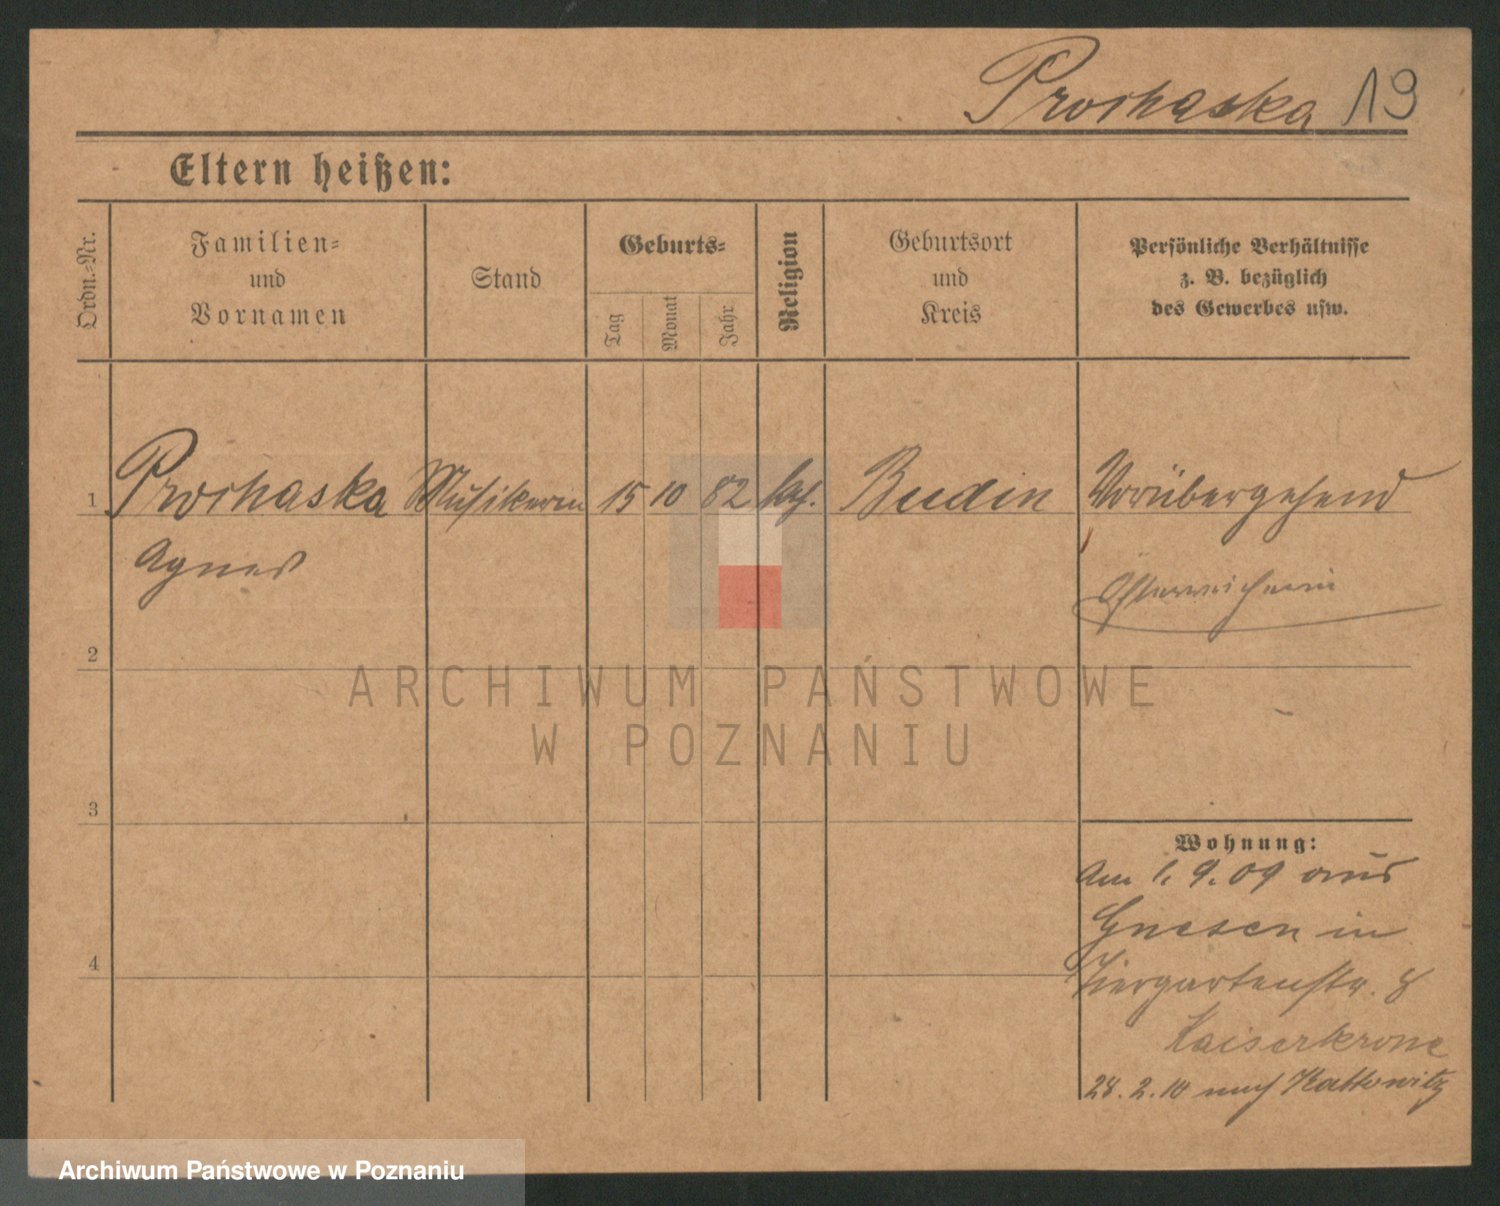 Prochaska 19
Eltern heißen:
Ordn.=Nr.
Familien=
und
Vornamen
Stand
Geburts=
Tag
Monat
Jahr
Religion
Geburtsort
und
Kreis
Persönliche Verhältnisse
z. B. bezüglich
des Gewerbes usw.
1 Prochaska Musikerin 15 10 82 kath. Budin Vorübergehend
Agnes
Österreicherin
2
ARCHIWUM PAŃSTWOWE
W POZNANIU
3
Wohnung:
Am 1. 9. 09 aus
Gnesen in
Tiergartenstr. 8
4
Kaiserkrone
28. 2. 10 nach Kattowitz
Archiwum Państwowe w Poznaniu